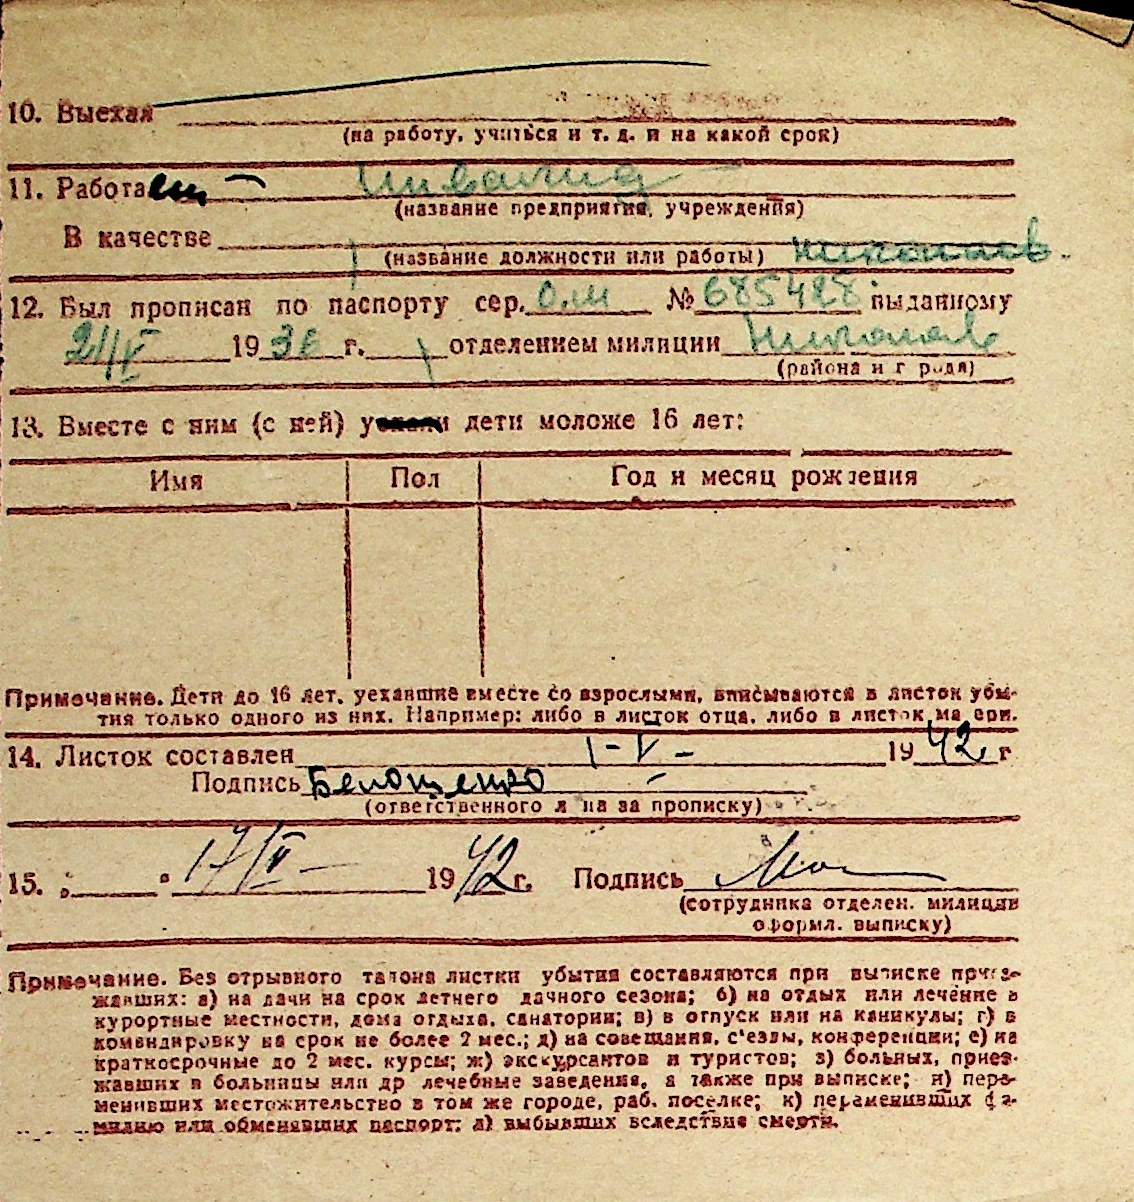 10. Выехал
(на работу, учиться и т. д. и на какой срок)
11. Работает — инвалид —
(название предприятия, учреждения)
В качестве
(название должности или работы)
12. Был прописан по паспорту сер. № 685428 выданному
21/V 1936 г. отделением милиции Николаев
(района и города)
13. Вместе с ним (с ней) уехали дети моложе 16 лет:
Имя Пол Год и месяц рождения
Примечание. Дети до 16 лет, уехавшие вместе со взрослыми, вписываются в листок убы-
тия только одного из них. Например: либо в листок отца, либо в листок матери.
14. Листок составлен 1-V- 1942 г
Подпись
(ответственного лица за прописку)
15. „ " 17/V — 1942 г. Подпись
(сотрудника отделен. милиции
оформл. выписку)
Примечание. Без отрывного талона листки убытия составляются при выписке приез-
жавших: а) на дачи на срок летнего дачного сезона; б) на отдых или лечение в
курортные местности, дома отдыха, санатории; в) в отпуск или на каникулы; г) в
командировку на срок не более 2 мес.; д) на совещания, с'езды, конференции; е) на
краткосрочные до 2 мес. курсы; ж) экскурсантов и туристов; з) больных, приез-
жавших в больницы или др лечебные заведения, а также при выписке; и) пере-
менивших местожительство в том же городе, раб. поселке; к) переменивших фа-
милию или обменявших паспорт; л) выбывших вследствие смерти.